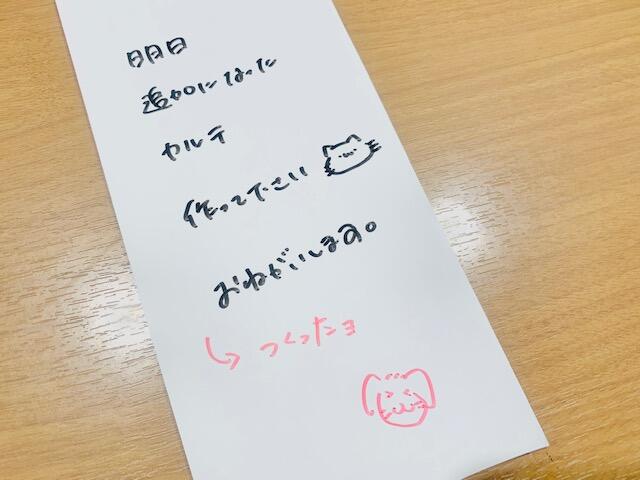 明日
追加になった
カルテ
作って下さい
おねがいします。
↳つくったヨ